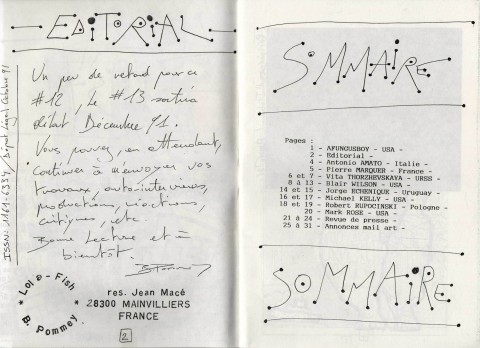 EDITORIAL
Un peu de retard pour ce
#12, le #13 sortira
début Décembre 91.
Vous pouvez, en attendant,
continuer à m'envoyer vos
travaux, auto-interviews,
productions, réactions,
critiques, etc.
Bonne lecture et =
bientôt.
B. Pommey
ISSN: 1164-6334 / Dépôt légal Octobre 91
* Lol@-Fish *
B. Pommey
res. Jean Macé
28300 MAINVILLIERS
FRANCE
2
SOMMAIRE
Pages :
1 - AFUNGUSBOY - USA -
2 - Editorial -
4 - Antonio AMATO - Italie -
5 - Pierre MARQUER - France -
6 et 7 - Vita THORZHEVSKAYA - URSS -
8 à 13 - Blair WILSON - USA -
14 et 15 - Jorge ECHENIQUE - Uruguay -
16 et 17 - Michael KELLY - USA -
18 et 19 - Robert RUPOCINSKI - Pologne -
20 - Mark ROSE - USA -
21 à 24 - Revue de presse -
25 à 31 - Annonces mail art -
SOMMAIRE